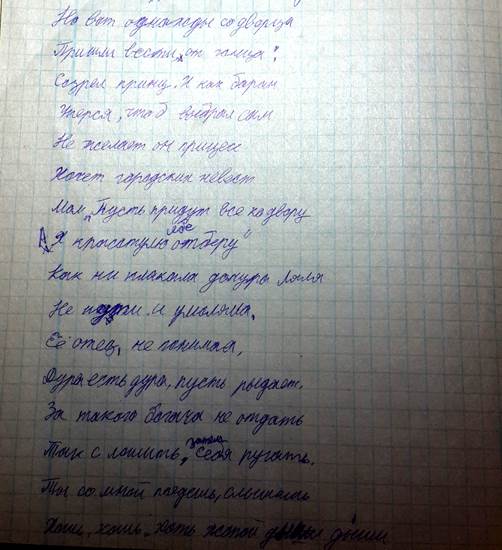 Но вот однажды со дворца
Пришли вести, от гонца".
Созрел принц. И как баран
Уперся, чтоб выбрал сам
Не желает он принцесс
Хочет городских невест
Мол "Пусть придут все ко двору
А я красотулю отберу"
Как ни плакала дочура Ляля
Не и умоляла,
Её отец, не понимая,
Дура есть дура, пусть рыдает.
За такого богача не отдать
Так с лошить, затем себя ругать.
Ты со мной поедешь, слышишь
Хошь, хошь, хоть жопой дыши